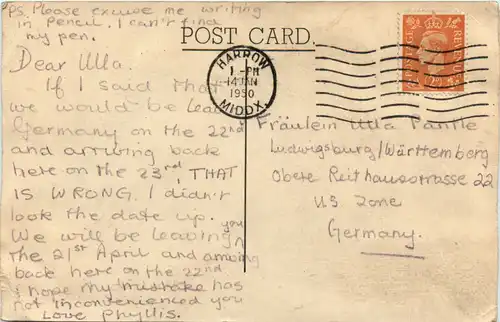 PS. Please excuse me writing
in Pencil. I can't find
my pen.
POST CARD.
HARROW
1 - PM
14 JAN
1950
MIDDX.
Dear Ulla.
If I said that
we would be leav
Germany on the 22nd
and arriving back
here on the 23rd, THAT
IS WRONG. I didn't
look the date up.
We will be leaving you
the 21st April and arriving
back here on the 22nd
I hope my mistake has
not inconvenienced you
Love Phyllis.
POSTAGE REVENUE
Fräulein Ulla
Ludwigsburg/Württemberg
Obere Reithausstrasse 22
US Zone
Germany.